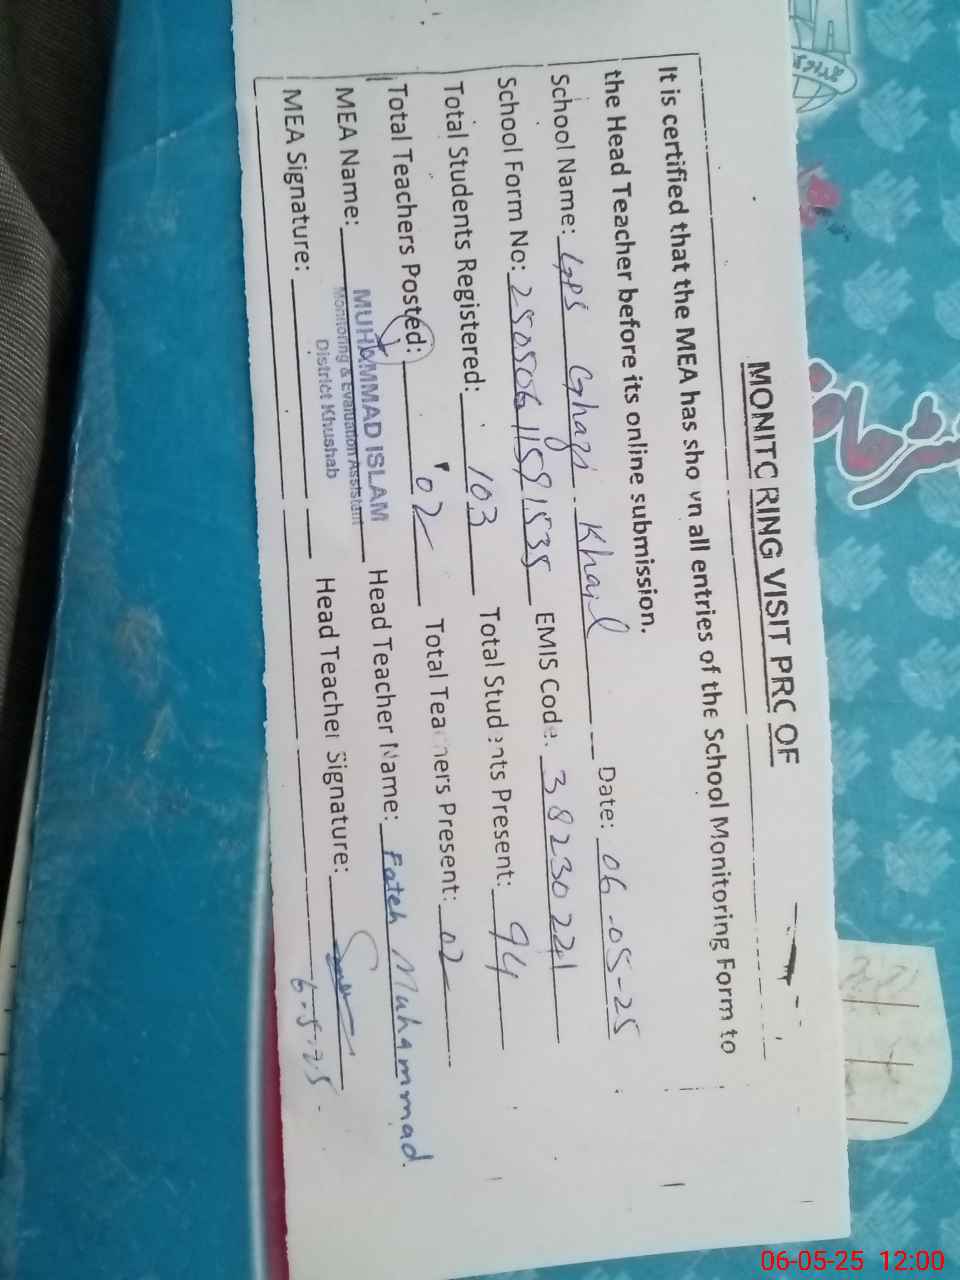 MONITC RING VISIT PRC OF
It is certified that the MEA has sho vn all entries of the School Monitoring Form to
the Head Teacher before its online submission.
School Name: GPS Ghazi Khail Date: 06-05-25
School Form No: 25050611591535 EMIS Code. 38230221
Total Students Registered: 103 Total Students Present: 94
Total Teachers Posted: 02 Total Teachers Present: 02
MEA Name: MUHAMMAD ISLAM Head Teacher Name: Fateh Muhammad
Monitoring & Evaluation Assistant
District Khushab
MEA Signature: Head Teacher Signature:
6-5-25
06-05-25 12:00